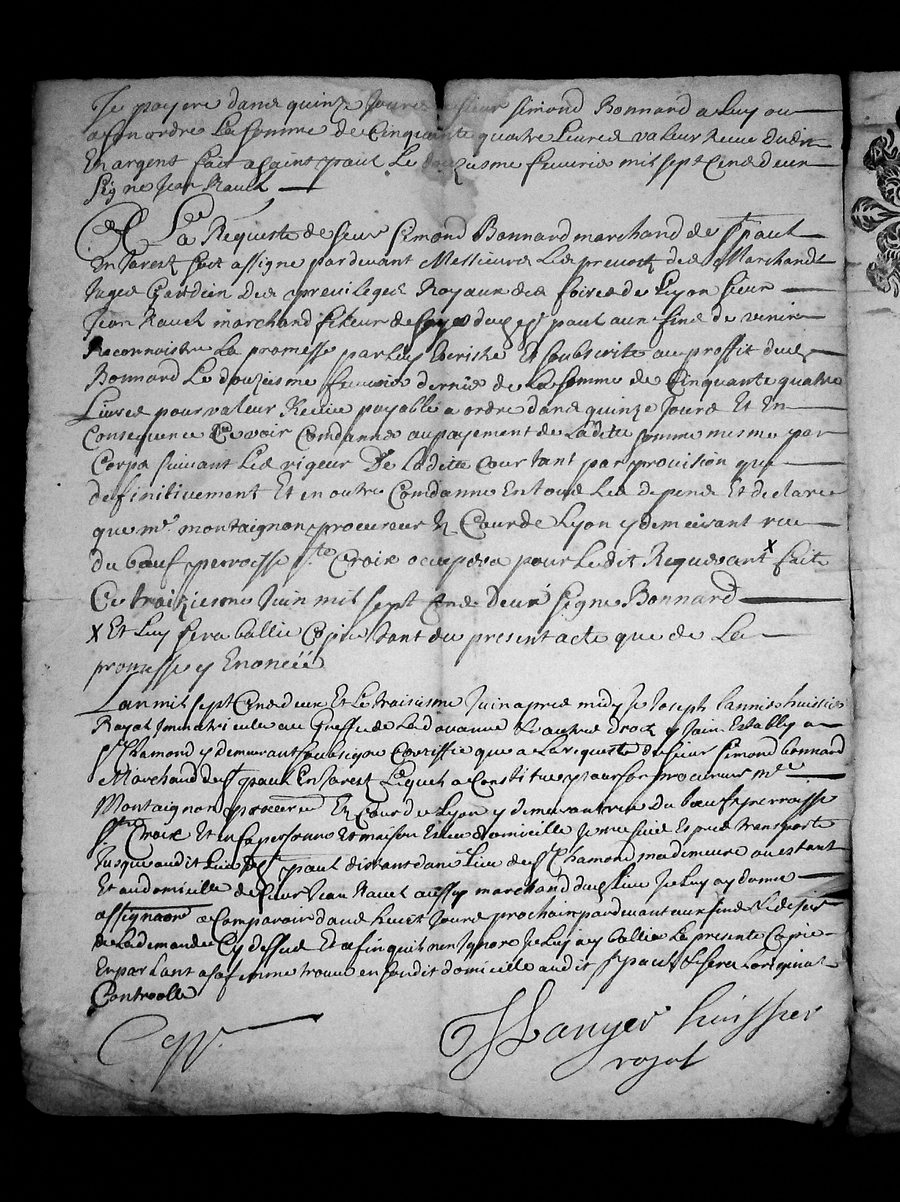 Je payere dans quinze Jours sieur Simond Bonnard a Luy ou
a son ordre La somme de Cinquante quatre Livres valeur Receue dudit
En argent fait a saint paul Le douzisme feuvrie mil sept Cens deux
signe Jean
A La Requeste de sieur Simond Bonnard marchand de st paul
En Jarest soit assigne pardevant Messieurs Les prevost des Marchands
Juges Gardien Des privileges Royaux des foires de Lyon sieur
Jean marchand fileur de soye dud st paul aux fins de venir
Reconnoistre La promesse par Luy Escriste Et soubscrite au proffit dud
Bonnard Le douzisme feuvrie dernie de La somme de Cinquante quatre
Livres pour valeur Receue payable a ordre dans quinze Jours Et En
Consequence se voir Condanne au payement de Ladite somme mesme par
Corps suivant Les rigeur De Ladite Cour tant par provision que
definitivement Et en outre Condanne En tous Les depens Et declare
que mr. montaignon procureur Es Cour de Lyon y demeurant rue
du boeuf perroisse ste Croix occupera pour Ledit Requerant x fait
Ce traiziesme Juin mil sept Cens deux signe Bonnard
x Et Luy sera ballie Copie tant du present acte que de La
promesse y Enoncée
L an mil sept Cens deux Et Le traisisme Juin apres midy Je Joseph huissier
Royal Immatricule au Greffe de La douanne Et autre droit y Join Establly a
st Chamond y demeurant soubsigne Certiffie que a La requeste de sieur Simond bonnard
Marchand de st paul En Jarest Lequel a Constitue pour son procureur me
Montaignon procureur Es Cour de Lyon y demeurant rue Du boeuf perroisse
ste Croix Et en sa personne Et maison Esleu domicille Je me suis Expres transporte
Jusque audit Lieu de st paul distant dune Lieu de st Chamond ma demeure ou estant
Et au domicille de sieur Jean aussy marchand dud Lieu Je Luy ay donne
assignaon a Comparoir dans huict Jours prochain pardevant aux fins
de La demande Cy dessus Et afin quil nen Ignore Je Luy ay ballie La presente Copie
En parlant a sa femme trouve en sondit domicille audit st paul Et sera Loriginal
Controolle
Copp.
huissier
royal